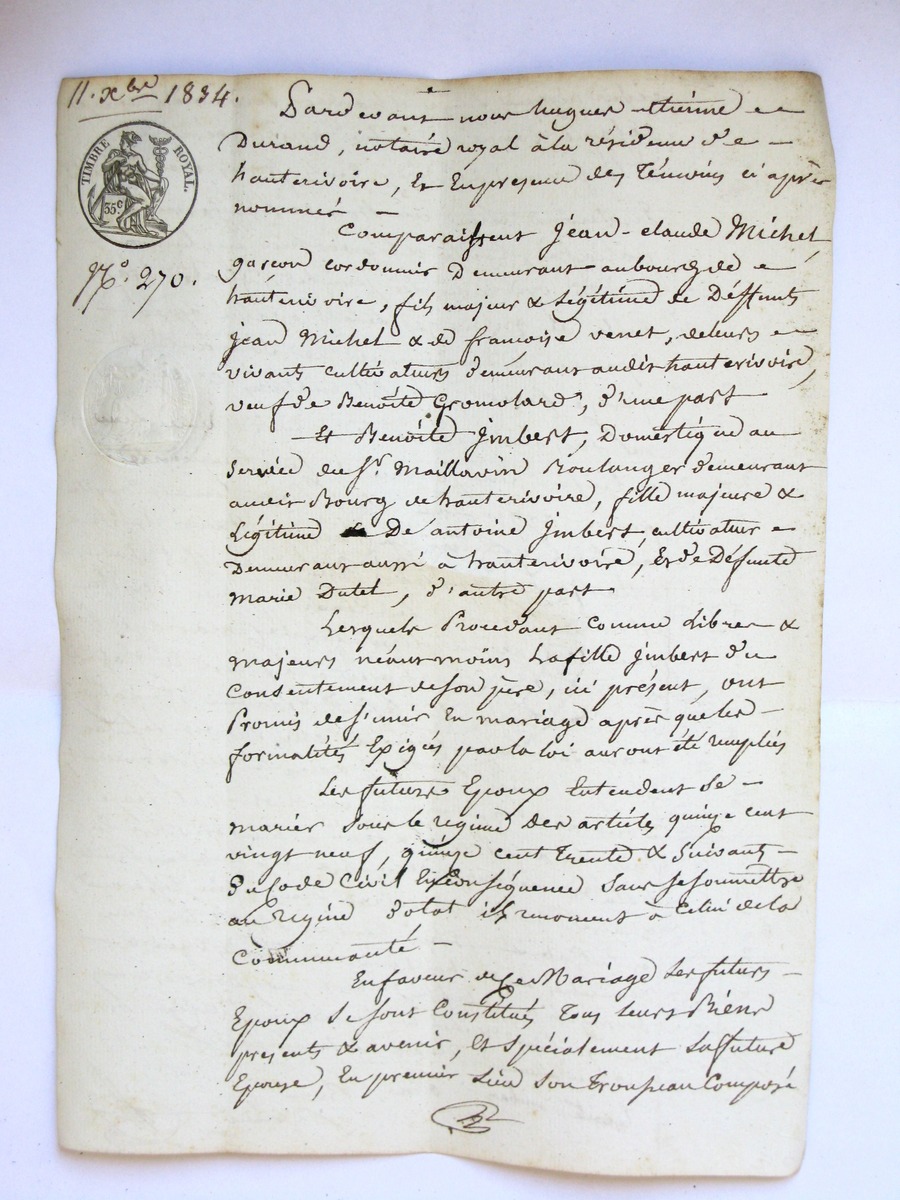 11. xbre 1834.
TIMBRE ROYAL.
35c
No. 270.
Pardevant nous hugues etienne
Durand, notaire royal à la résidence de
hauterivoire, Et En presence des Témoins ci après
nommés
Comparaissent Jean-claude Michel
garçon cordonnier Demeurant au bourg de
hauterivoire, fils majeur & Légitime de Deffunts
jean Michel & de françoise venet, de leurs
vivants cultivateurs demeurant audit hauterivoire,
veuf de Benoite Gromolard, d'une part
Et Benoite Jmbert, Domestique au
service du Sr. Maillavin Boulanger demeurant
audit Bourg de hauterivoire, fille majeure &
Légitime De antoine Jmbert, cultivateur
Demeurant aussi à hauterivoire, Et de Défunte
Marie Dutel, d'autre part
Lesquels Procédant comme Libres &
majeurs néantmoins La fille Jmbert du
Consentement de son père, ici présent, ont
Promis de s'unir En mariage après que les
formalités Exigés par la loi auront été remplies
Les futurs Epoux Entendent se
marier sous le régime des articles quinze cent
vingt neuf, quinze cent trente & suivants
du Code Civil En Conséquence sans se soumettre
au Régime dotal ils renoncent à Celui de la
Communauté
En faveur de Ce Mariage Les futurs
Epoux se sont Constitués Tous Leurs Biens
présents & avenir, Et spécialement La future
Epouse, En premier Lieu son Trousseau Composé